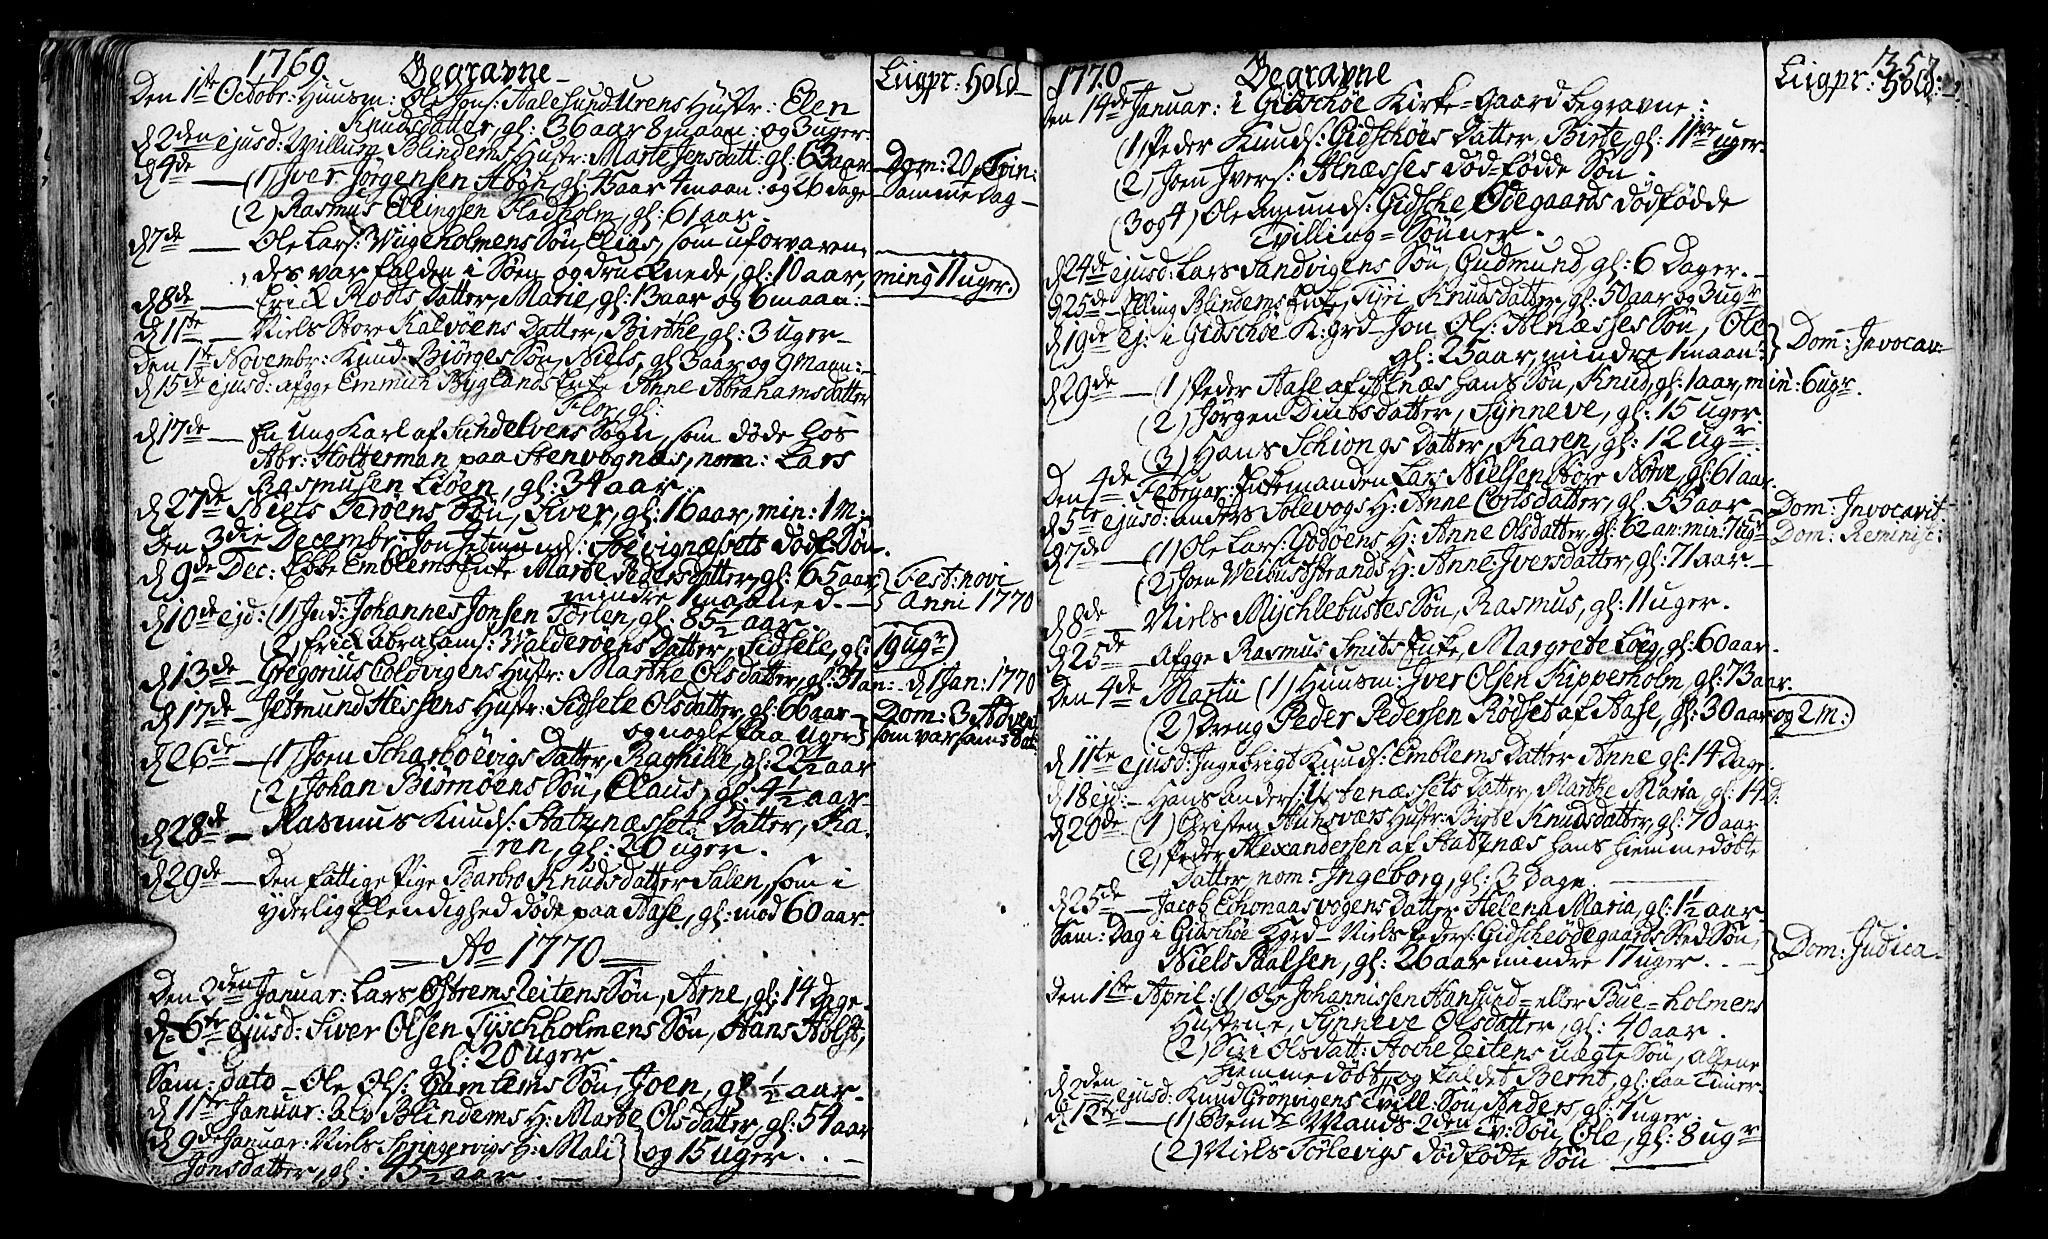 1769 Begravne
Liigpr: Hold
Den 1ste Octobr: Huusm: Ole Jons: Aalesund Urens Hustr: Elen
Knudsdatter, gl: 36 aar 8 maan: og 3 uger.
d 2den ejusd: Villum Blindems Hustr: Marte Jensdatt: gl: 63 aar
d 4de — (1) Iver Jørgensen Høgh, gl: 45 aar 4 maan: og 26 dage
Dom: 20 p Trin:
Samme Dag
(2) Rasmus Ellingsen Fladholm, gl: 61 aar.
d 7de — Ole Lars: Wiigeholmens Søn, Elias, som uforvaren
des var falden i Søen og drucknede, gl: 10 aar,
ming 11 uger.
d 8de — Erick Rødts Datter, Marie, gl: 13 aar og 6 maan:
d 11te — Niels Store Kalvøens Datter, Birthe, gl: 3 uger
Den 1te Novembr: Knud Biørges Søn, Niels, gl 3 aar og 9 Maan:
d 15de ejusd: afgge Emmich Byglands Enke Anne Abrahamsdatter
Flor, gl:
d 17de — En ung Karl af Sundelvens Sogn, som døde hos
Abr: Holterman paa Stenvognæs, nom: Lars
Rasmusen Liøen, gl: 34 aar.
d 27de Niels Terøens Søn, Siver, gl: 16 aar, min: 1 M:
Den 3die Decembr: Jon Jetmunds: Søevignæsets dødf: Søn.
d 9de Dec: Ebbe Emblems Enke Marte Pedersdatter, gl: 65 aar
mindre 1 maaned.
Fest: novi
Anni 1770
d 10de ejd: (1) Jud: Johannes Jonsen Torlen, gl: 85 1/2 aar
(2) Erick Abrahams: Walderøens Datter, Sidsele, gl: 19 ugr
d 13de — Gregorius Coldvigens Hustr: Marthe Olsdatter, gl: 37 an: — d 1 Jan: 1770
d 17de — Jetmund Hessens Hustr: Sidsele Olsdatter, gl: 66 aar
og nogle faa uger
Dom: 3 Advent
som var sam: Dat
d 26de — (1) Joen Scharbøevigs Datter, Raghilde, gl: 22 1/2 aar
(2) Johan Biørnøens Søn, Claus, gl: 4 1/2 aar
d 28de — Rasmus Knuds: Flatznæssets Datter, Ka
ren, gl: 26 uger.
d 29de — Den fattige Pige Barbro Knudsdatter Salen, som i
yderlig Elendighed døde paa Aase, gl: mod 60 aar
Ao 1770
Den 2den Januar: Lars Østremsleitens Søn, Arne, gl: 14 Dage.
d 6te ejusd: Siver Olsen Tyschholmens Søn, Hans Holst,
gl: 20 uger.
Sam: dato — Ole Ols: Gamlems Søn, Joen, gl 1/2 aar
d 11te Januar: Blindems H: Marte Olsdatter, gl: 54 aar
og 15 uger.
d 9de Januar: Niels Springervigs H: Mali
Jonsdatter, gl: 45 1/2 aar.
1770 Begravne
Liigpr: Hold:
357.
Den 14de Januar: i Gidschøe Kirke-Gaard begravne:
(1) Peder Knuds: Gidschøes Datter, Birte, gl: 11ve uger
(2) Joen Ivers: Alnæsses død-fødde Søn.
(3 og 4) Ole Amunds: Gidsche Ødegaards dødfødde
Tvilling-Sønner.
d 24de ejusd: Lars Sandvigens Søn, Gudmund, gl: 6 Dager.
d 25de — Elling Blindems Enke, Siri Knudsdatter, gl: 50 aar og 3 ugr
d 19de ej: i Gidschøe K: grd — Jon Ols: Alnæsses Søn, Ole
gl: 25 aar, mindre 1 maan:
Dom: Invocav:
d 29de — (1) Peder Aase af Alnæs hans Søn, Knud, gl: 1 aar, min: 6 ugr.
(2) Jørgen Dimbs datter, Synneve, gl: 15 uger.
(3) Hans Schiongs Datter, Karen, gl: 12 ugr
Den 4de Februar: Enkemanden Lars Nielsen Store Nørve, gl: 61 aar.
d 5te ejusd: anders Solevogs H: Anne Cortsdatter, gl: 55 aar
Dom: Invocavit
d 7de — (1) Ole Lars: Godøens H: Anne Olsdatter, gl: 62 an: min: 7 ugr
Dom: Reminisc:
(2) Joen Weibustsstrands H: Anne Iversdatter, gl: 71 aar.
d 8de — Niels Myschlebustes Søn, Rasmus, gl: 11 uger.
d 25de — Afgge Rasmus Smits Enke, Margrete Løeg, gl: 60 aar.
Den 4de Martii (1) Huusm: Iver Olsen Kipperholm, gl: 73 aar.
(2) Dreng Peder Pedersen Rødset af Aase, gl: 30 aar og 2 m:
d 11te ejusd: Ingebrigt Knuds: Emblems Datter Anne gl: 14 Dage.
d 18 ejd: — Hans Anders: Ustenæssets Datter, Marthe Maria, gl: 14 d:
d 20de (1) Christen Hunsværs Hustr: Birte Knudsdatter, gl: 70 aar
(2) Peder Alexandersen af Flatznæs hans hiemmedøbte
Datter, nom: Ingeborg, gl: 3 dage.
d 25de — Jacob Echonaasvogens Datter Helena Maria, gl: 1 1/2 aar
Sam: Dag i Gidschøe Kgrd — Niels Peders: Gidscheødegaards Sted Søn,
Niels Paalsen, gl: 26 aar mindre 17 uger.
Dom: Judica.
Den 1ste April: (1) Ole Johannissen Aanssund- eller Bue-holmens
Hustrue, Synneve Olsdatter, gl: 40 aar.
(2) Siri Olsdatt: Hocheleitens uægte Søn, allene
hiemmedøbt, og kaldet Bernt, gl: faa Timer.
d 2den ejusd: Knud Grønvigens Tvill: Søn, Anders, gl: 7 uger.
d 12te — (1) Bemte Mands 2den Tv: Søn, Ole, gl: 8 ugr
(2) Niels Tørlevigs dødfødte Søn